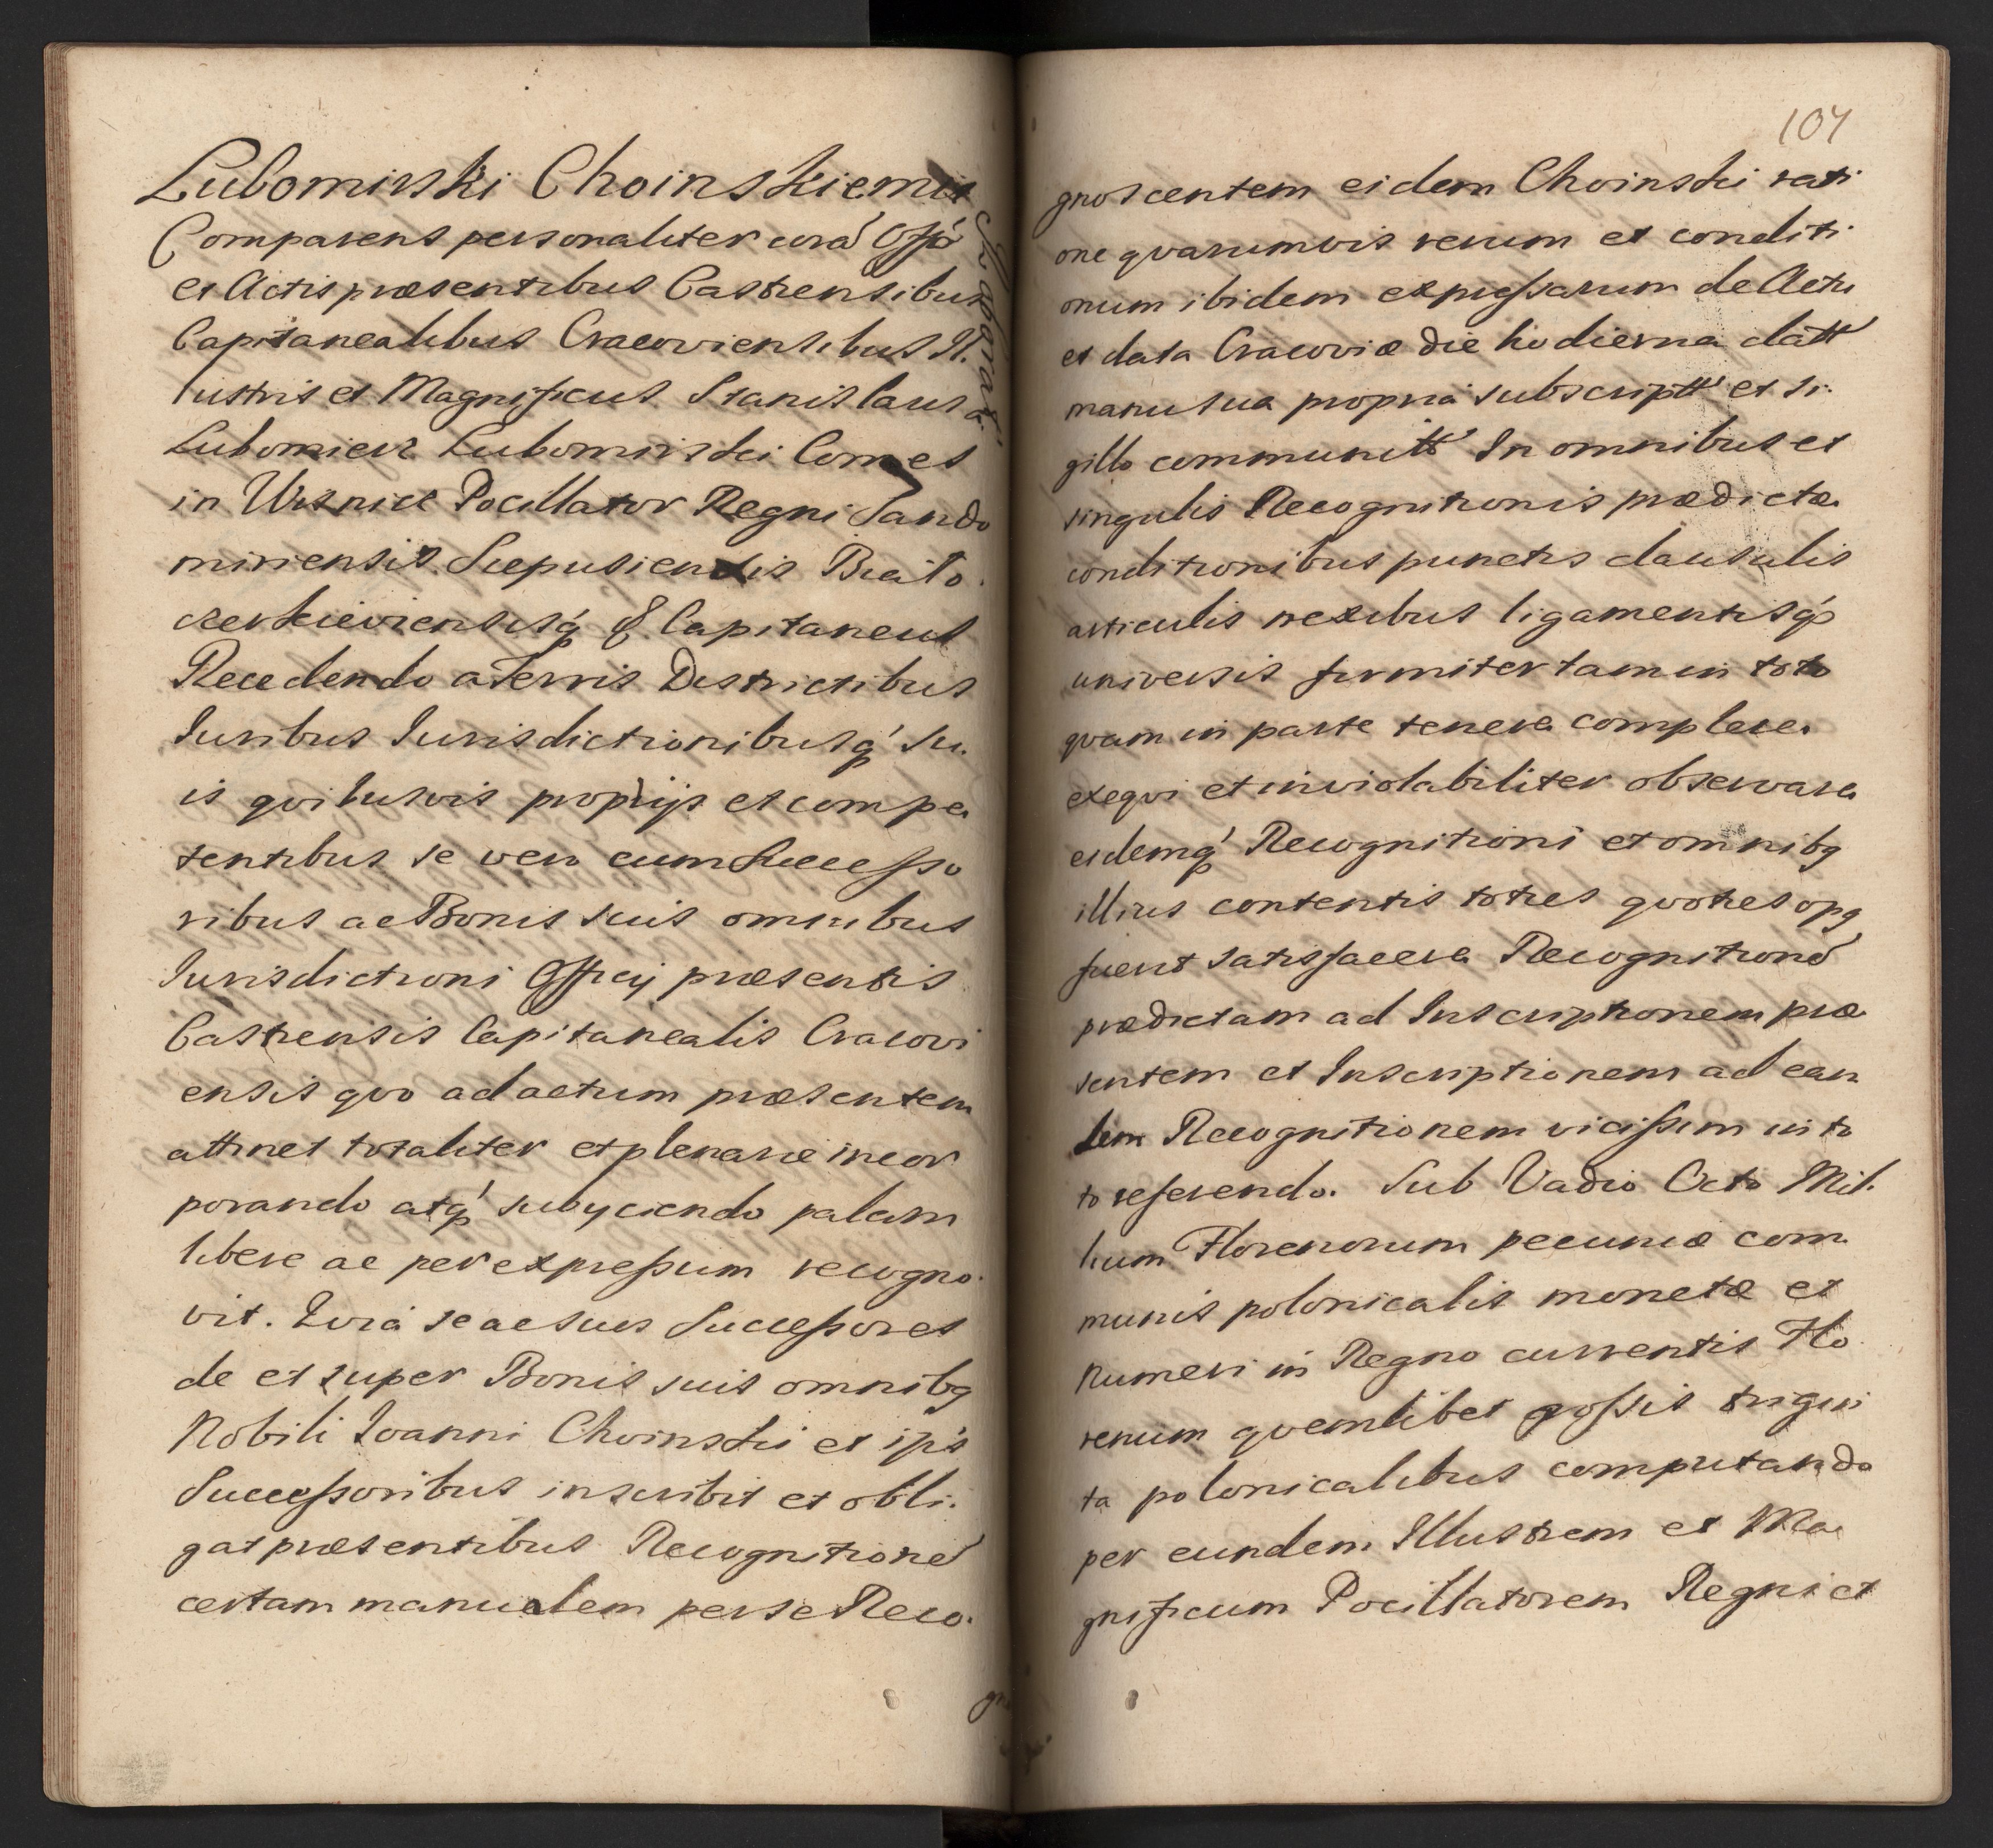 Lubomirski Choinskiemu
Comparens personaliter corā Offō
et Actis præsentibus Castrensibus
Capitanealibus Cracoviensibus Il.
lustris et Magnificus Stanislaus a
Lubomierz Lubomirski Comes
in Wisnicz Pocillator Regni Sando
miriensis Scepusiensis Biało
cerkieviensisq₃ & Capitaneus
Recedendo a Terris Districtibus
Iuribus Iurisdictionibusq₃ su.
is qvibusvis proprijs et compe
tentibus se vero cum Successo
ribus ac Bonis suis omnibus
Iurisdictioni Officij præsentis
Castrensis Capitanealis Cracovi
ensis qvo ad actum præsentem
attinet totaliter et plenarie incor
porando atq₃ subijciendo palam
libere ac per expressum recogno.
vit. Qvia se ac suos Successores
de et super Bonis suis omnibq
Nobili Ioanni Choinski et ips
Successoribus inscribit et obli.
gat præsentibus Recognitionē
certam manualem per se Reco.
gno
107
gnoscentem eidem Choinski rati
one qvarumvis rerum et conditi.
onum ibidem expressarum de Actu
et data Cracoviæ die hodierna datt
manu sua propria subscriptt et si.
gillo communitt In omnibus et
singulis Recognitionis prædictæ
conditionibus punctis clausulis
articulis nexibus ligamentisq₃
universis firmiter tam in toto
qvam in parte tenere complere
exeqvi et inviolabiliter observare
eidemq₃ Recognitioni et omnibq
illius contentis toties qvoties opq
fuerit satisfacere Recognitionē
prædictam ad Inscriptionem præ
sentem et Inscriptionem ad ean
dem Recognitionem vicissim in to
to referendo. Sub Vadio Octo Mil.
lium Florenorum pecuniæ com.
munis polonicalis monetæ et
numeri in Regno currentis Flo
renum qvemlibet grossis trigin
ta polonicalibus computando
per eundem Illustrem et Ma
gnificum Pocillatorem Regni et